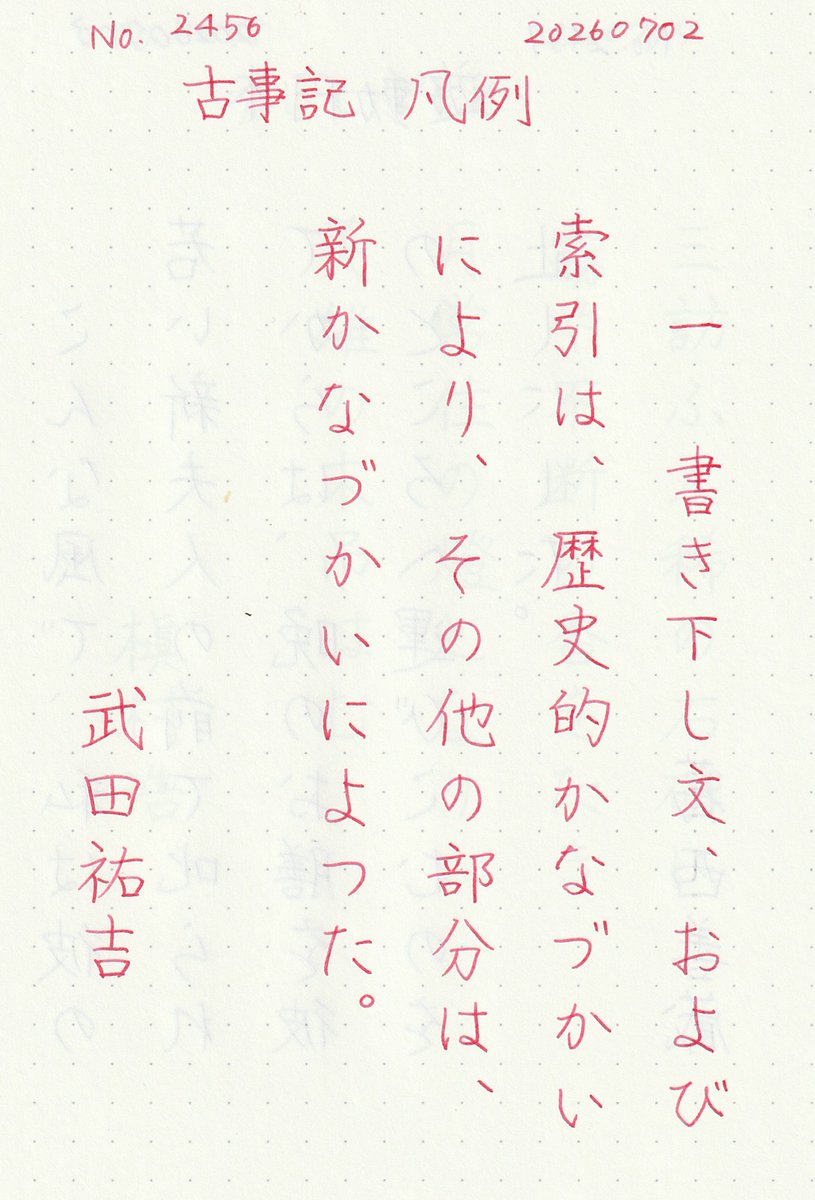 No. 2456
20260702
古事記 凡例
一 書き下し文、および
索引は、歴史的かなづかい
により、その他の部分は、
新かなづかいによつた。
武田祐吉